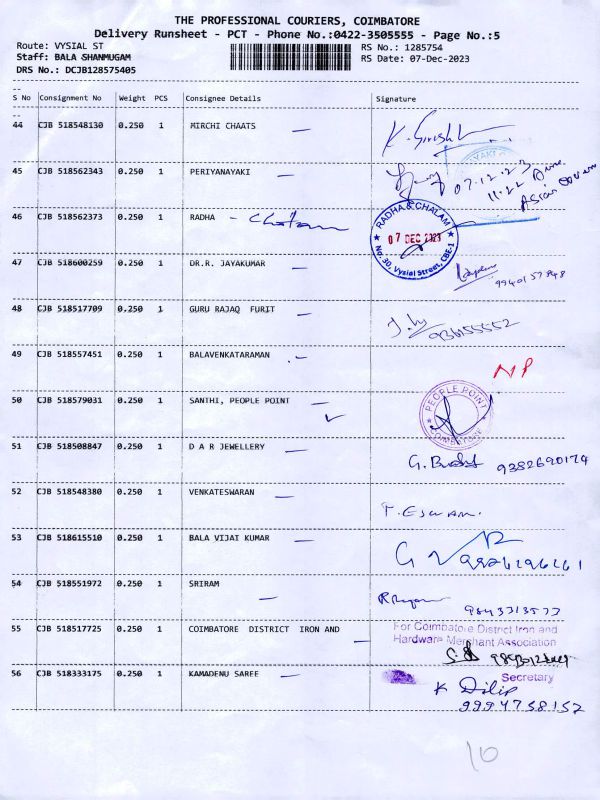 THE PROFESSIONAL COURIERS, COIMBATORE
Delivery Runsheet - PCT - Phone No.:0422-3505555 - Page No.:5
Route: VYSIAL ST RS No.: 1285754
Staff: BALA SHANMUGAM RS Date: 07-Dec-2023
DRS No.: DCJB128575405
S No Consignment No Weight PCS Consignee Details Signature
44 CJB 518548130 0.250 1 MIRCHI CHAATS
45 CJB 518562343 0.250 1 PERIYANAYAKI 07.12.23
11.22
46 CJB 518562373 0.250 1 RADHA - Chalam
RADHA & CHALAM
07 DEC 2023
No. 30, Vysial Street, CBE-1
47 CJB 518600259 0.250 1 DR.R. JAYAKUMAR
48 CJB 518517709 0.250 1 GURU RAJAQ FURIT
49 CJB 518557451 0.250 1 BALAVENKATARAMAN NP
50 CJB 518579031 0.250 1 SANTHI, PEOPLE POINT
PEOPLE POINT
COIMBATORE
51 CJB 518508847 0.250 1 D A R JEWELLERY 9382690174
52 CJB 518548380 0.250 1 VENKATESWARAN
53 CJB 518615510 0.250 1 BALA VIJAI KUMAR
54 CJB 518551972 0.250 1 SRIRAM
55 CJB 518517725 0.250 1 COIMBATORE DISTRICT IRON AND
For Coimbatore District Iron and
Hardware Merchant Association
Secretary
56 CJB 518333175 0.250 1 KAMADENU SAREE K Dilip
9994758152
10